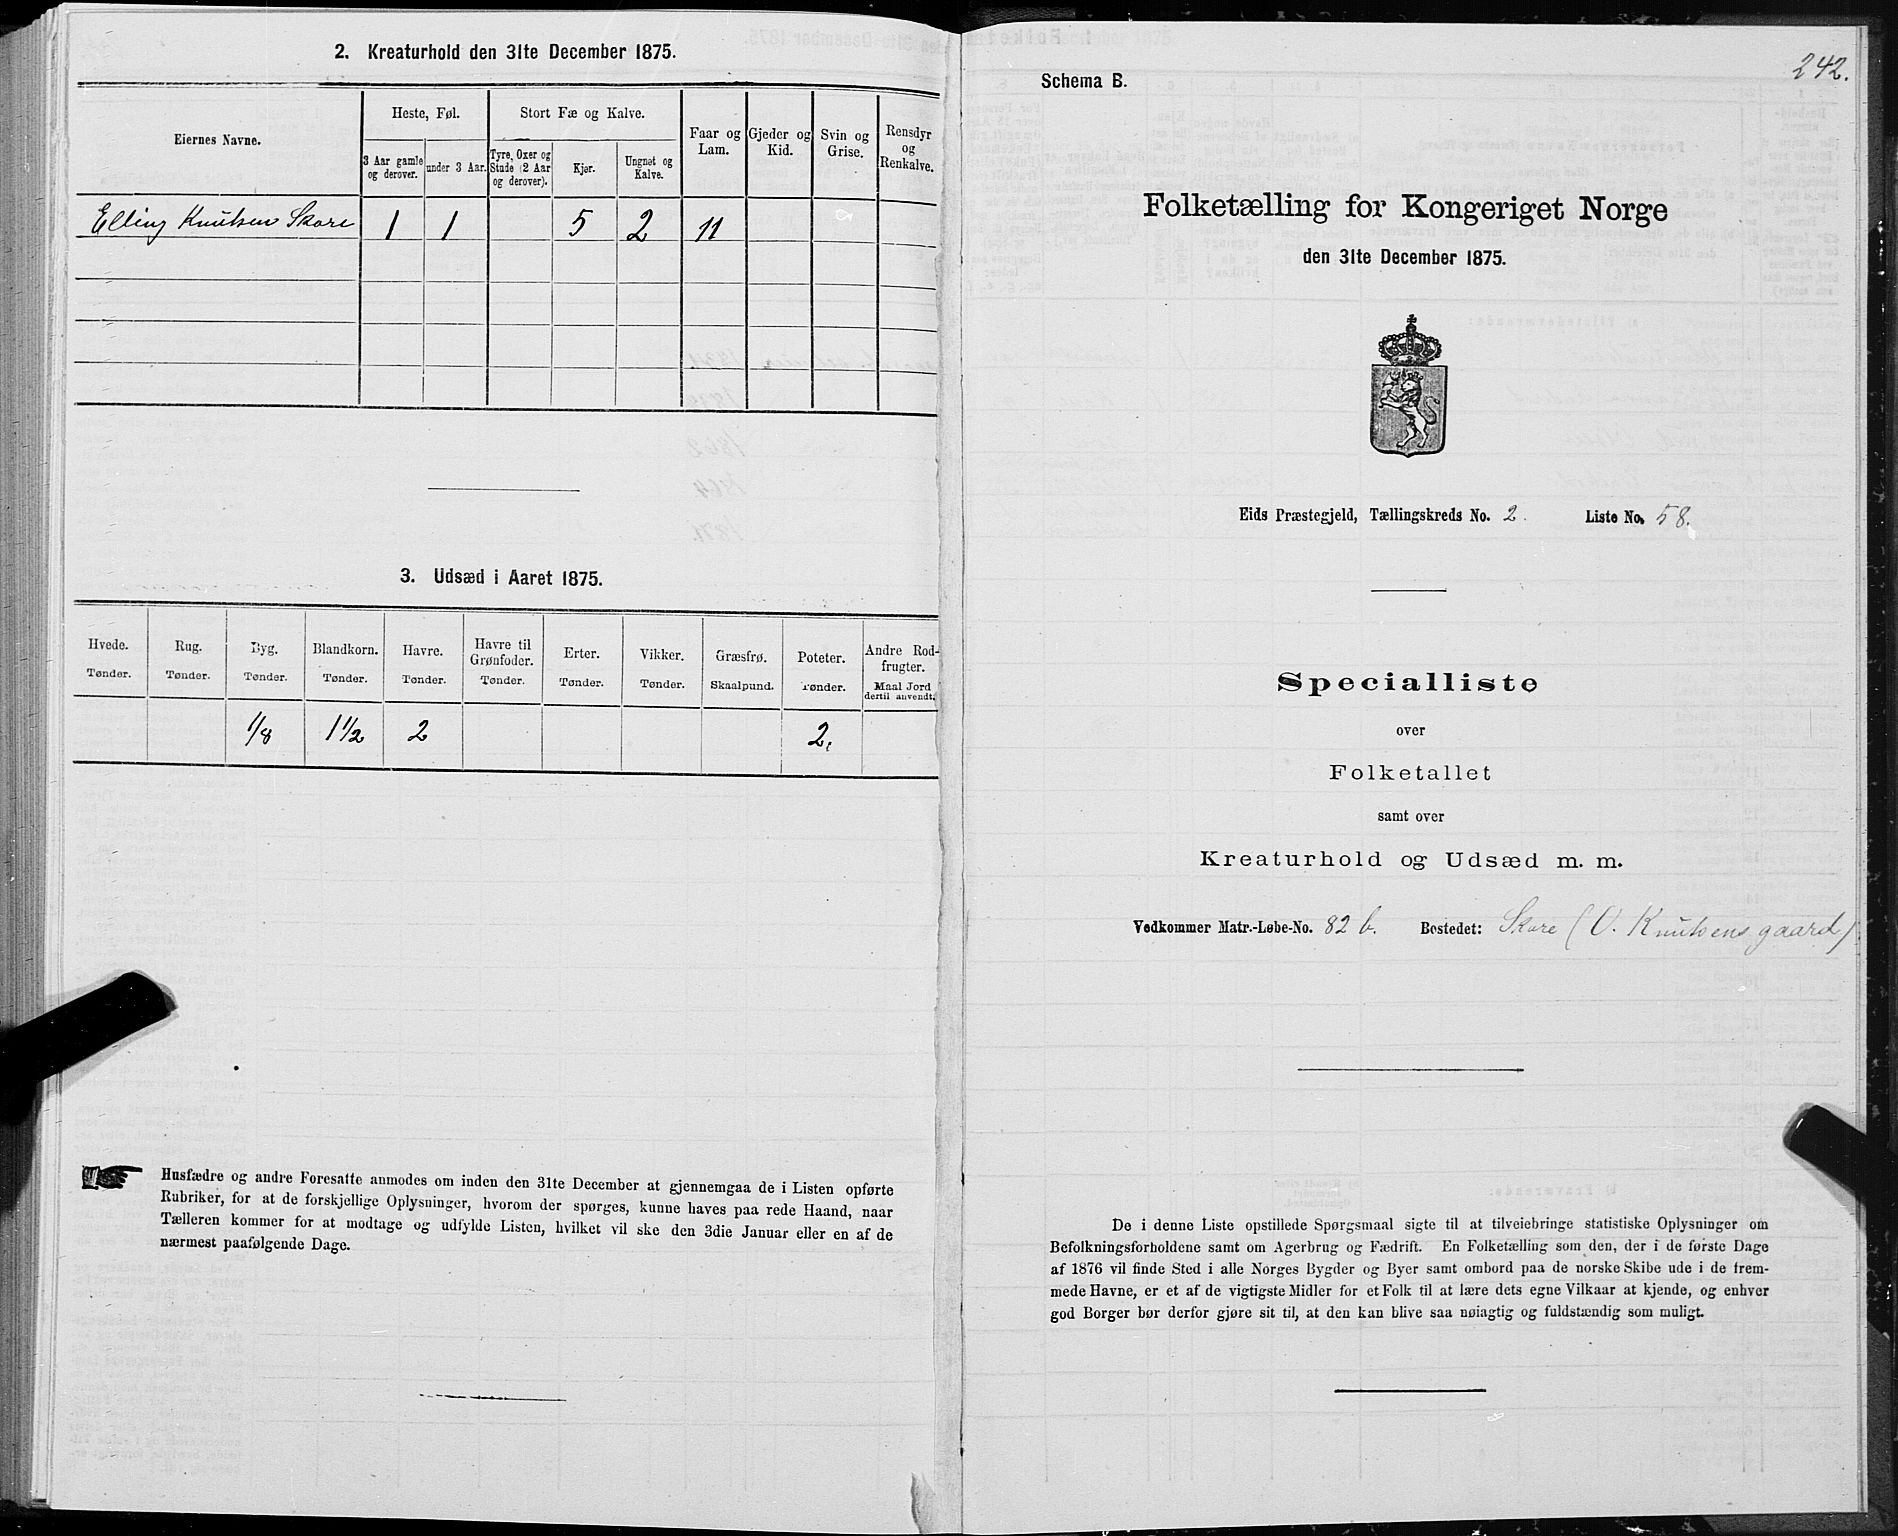 2. Kreaturhold den 31te December 1875.
Eiernes Navne.
Heste, Føl.
Stort Fæ og Kalve.
3 Aar gamle og derover.
under 3 Aar.
Tyre, Oxer og Stude (2 Aar og derover).
Kjør.
Ungnøt og Kalve.
Faar og Lam.
Gjeder og Kid.
Svin og Grise.
Rensdyr og Renkalve.
Elling Knutsen Skore 1 1 5 2 11
3. Udsæd i Aaret 1875.
Hvede. Rug. Byg. Blandkorn. Havre. Havre til Grønfoder. Erter. Vikker. Græsfrø. Poteter. Andre Rodfrugter.
Tønder. Tønder. Tønder. Tønder. Tønder. Tønder. Tønder. Tønder. Skaalpund. Tønder. Maal Jord dertil anvendt.
1/8 1 1/2 2 2.
Husfædre og andre Foresatte anmodes om inden den 31te December at gjennemgaa de i Listen opførte
Rubriker, for at de forskjellige Oplysninger, hvorom der spørges, kunne haves paa rede Haand, naar
Tælleren kommer for at modtage og udfylde Listen, hvilket vil ske den 3die Januar eller en af de
nærmest paafølgende Dage.
242.
Schema B.
Folketælling for Kongeriget Norge
den 31te December 1875.
Eids Præstegjeld, Tællingskreds No. 2. Liste No. 58.
Specialliste
over
Folketallet
samt over
Kreaturhold og Udsæd m. m.
Vedkommer Matr.-Løbe-No. 82 b. Bostedet: Skore (O. Knutsens gaard)
De i denne Liste opstillede Spørgsmaal sigte til at tilveiebringe statistiske Oplysninger om
Befolkningsforholdene samt om Agerbrug og Fædrift. En Folketælling som den, der i de første Dage
af 1876 vil finde Sted i alle Norges Bygder og Byer samt ombord paa de norske Skibe ude i de frem-
mede Havne, er et af de vigtigste Midler for et Folk til at lære dets egne Vilkaar at kjende, og enhver
god Borger bør derfor gjøre sit til, at den kan blive saa nøiagtig og fuldstændig som muligt.